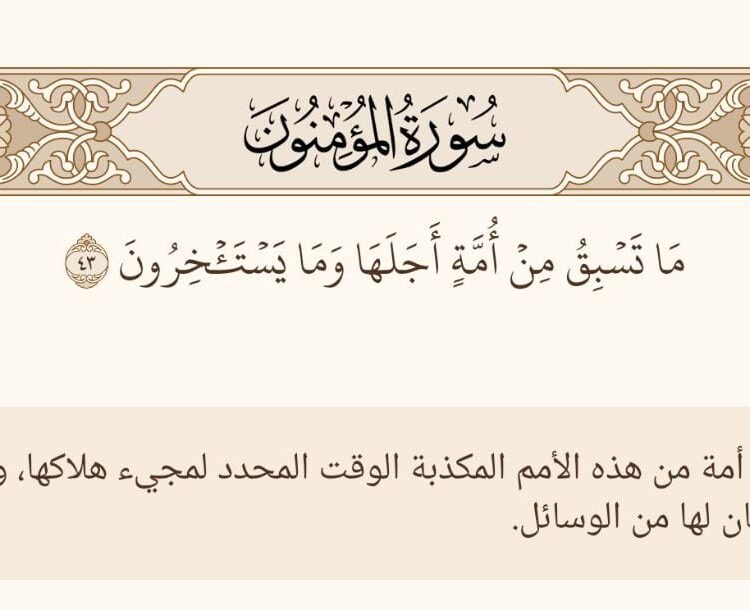 سُورَةُ المُؤْمِنُونَ
مَا تَسْبِقُ مِنْ أُمَّةٍ أَجَلَهَا وَمَا يَسْتَـْٔخِرُونَ ٤٣
أمة من هذه الأمم المكذبة الوقت المحدد لمجيء هلاكها،
لها من الوسائل.